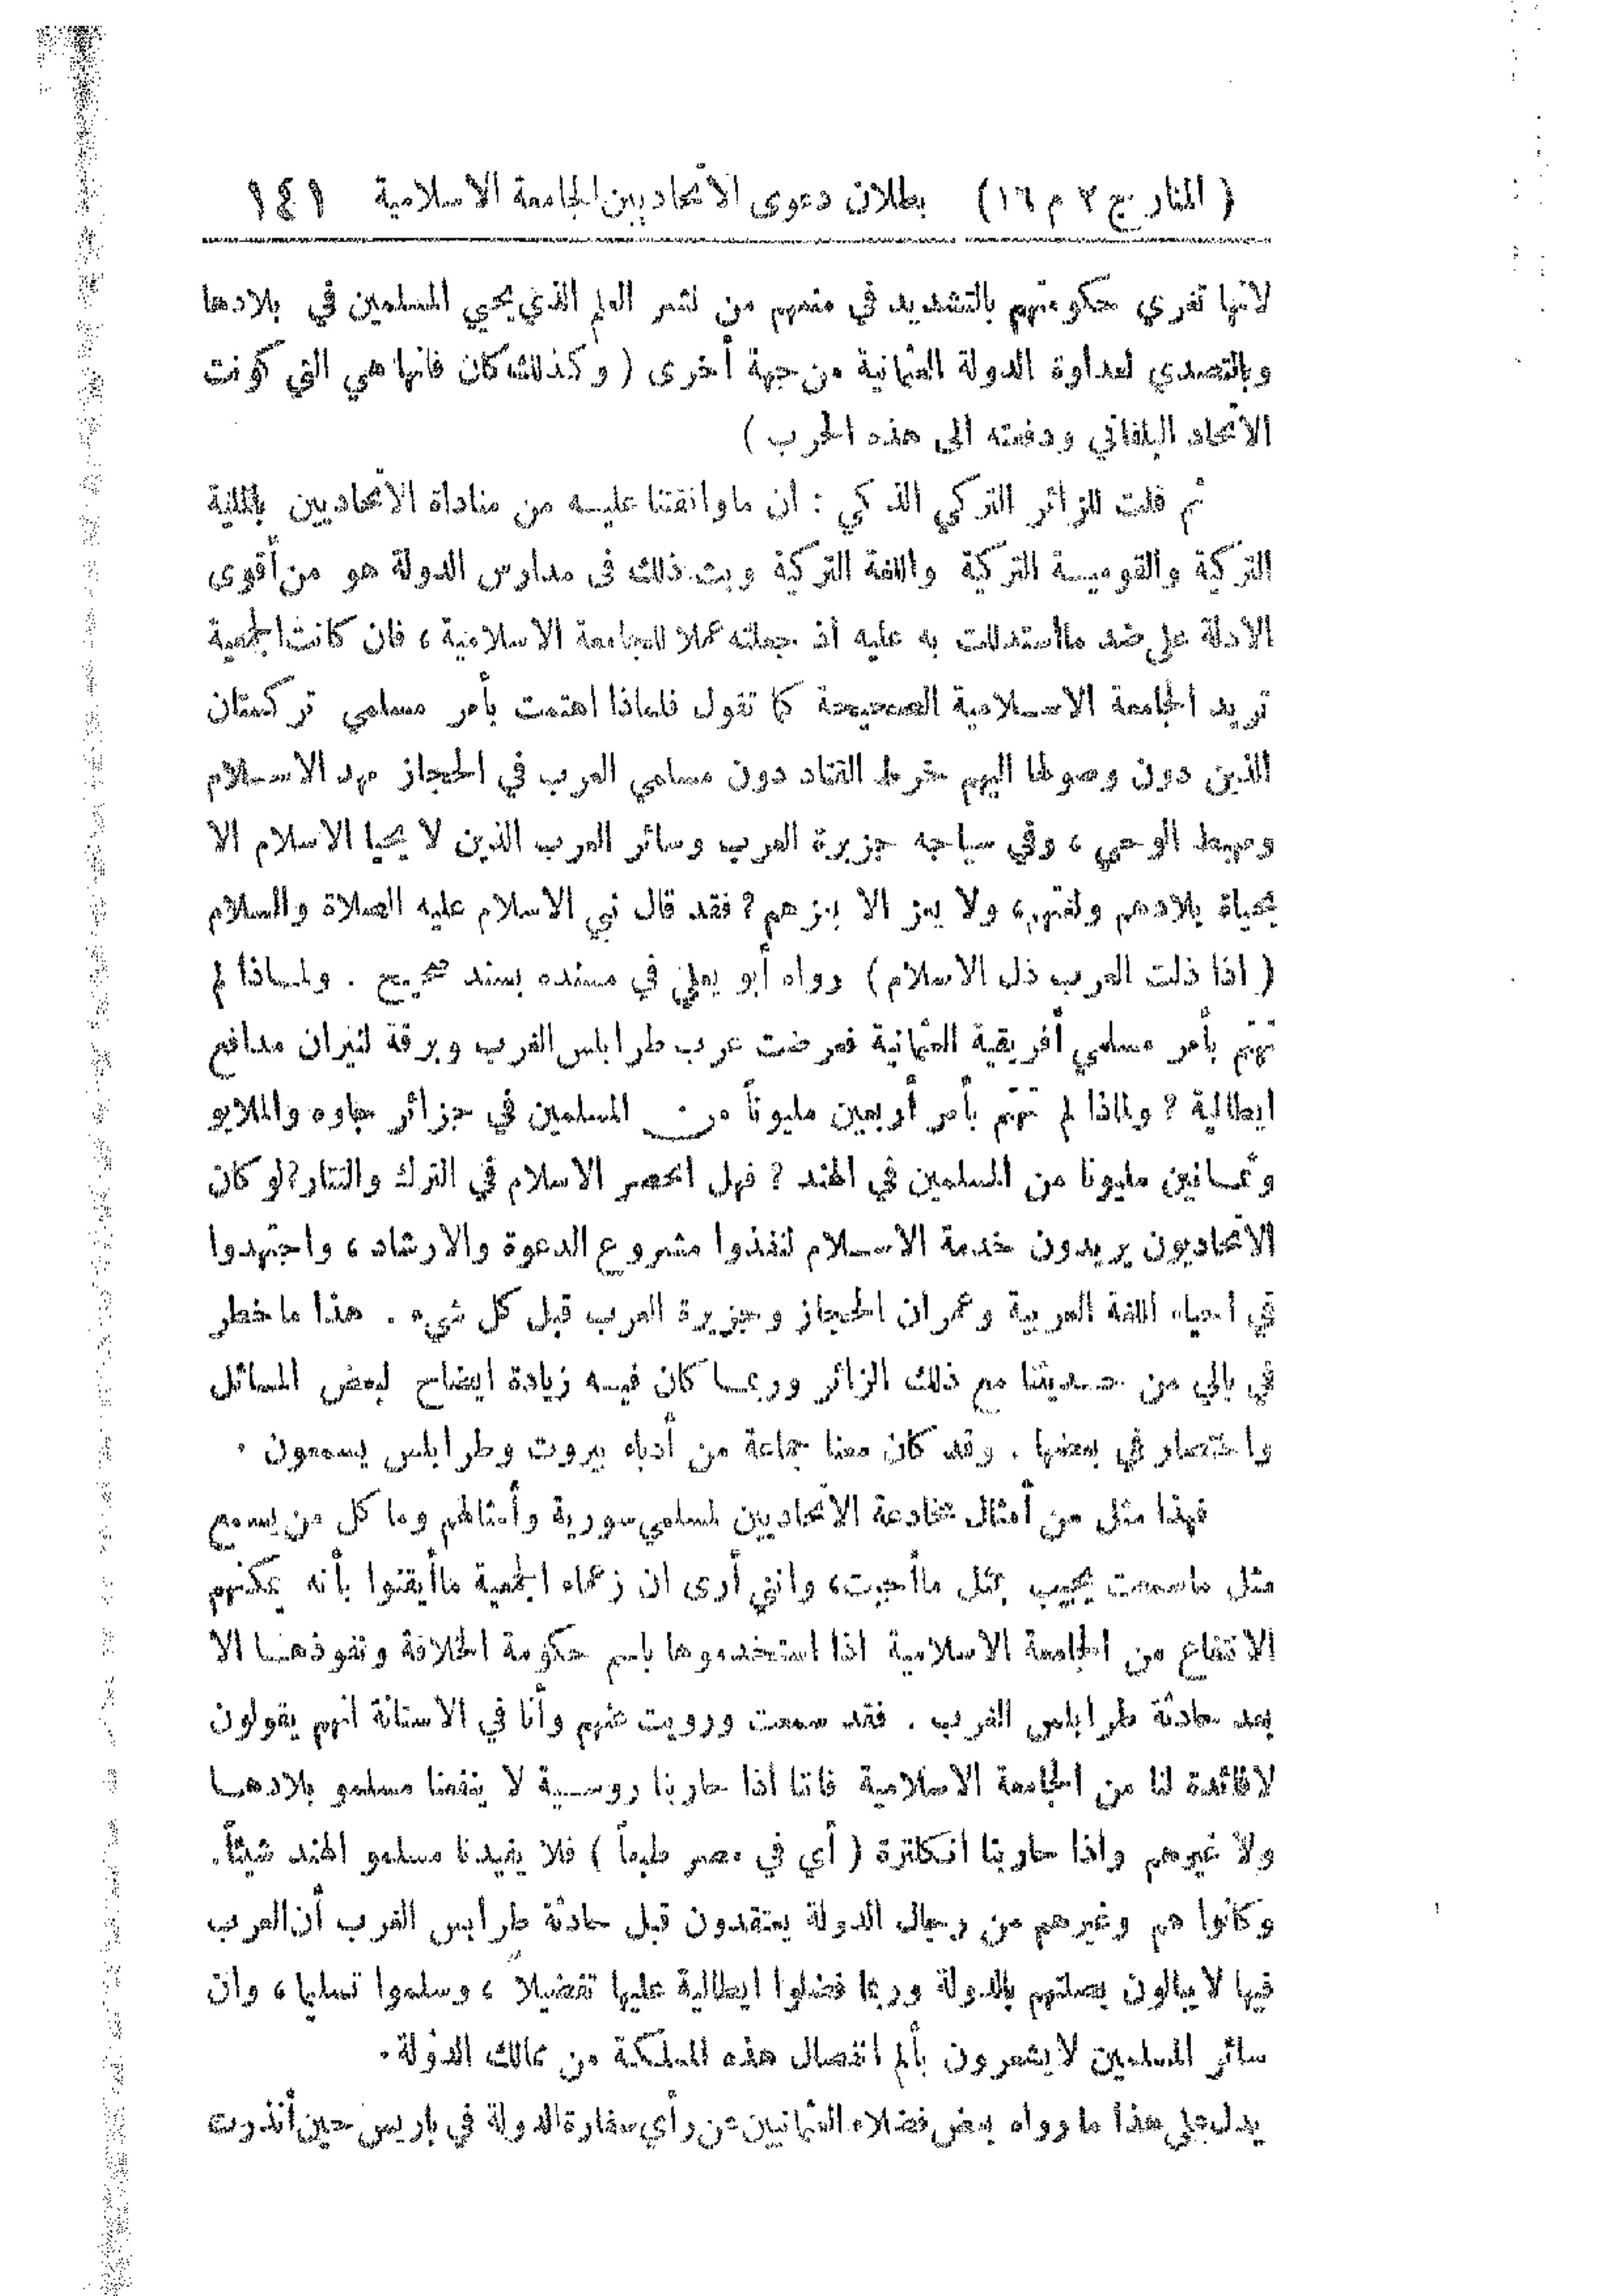 ( المنار ج ٢ م ١٦) بطلان دعوى الاتحاديين الجامعة الاسلامية ١٤١
لانها تغري حكومتهم بالتشديد في منعهم من نشر العلم الذي يحيي المسلمين في بلادها
وبالتصدي لعداوة الدولة العثمانية من جهة أخرى ( وكذلك كان فانها هي التي كونت
الاتحاد البلقاني ودفعته الى هذه الحرب )
ثم قلت للزائر التركي الذكي : ان ماوافقتنا عليه من مناداة الاتحاديين بالملية
التركية والقومية التركية واللغة التركية وبث ذلك فى مدارس الدولة هو من أقوى
الادلة على ضد مااستدللت به عليه اذ جعلته عملا للجامعة الاسلامية ، فان كانت الجمعية
تريد الجامعة الاسلامية الصحيحة كما تقول فلماذا اهتمت بأمر مسلمي تركستان
الذين دون وصولها اليهم خرط القتاد دون مسلمي العرب في الحجاز مهد الاسلام
ومهبط الوحي ، وفي سياجه جزيرة العرب وسائر العرب الذين لا يحيا الاسلام الا
بحياة بلادهم ولغتهم ، ولا يعز الا بعزهم ? فقد قال نبي الاسلام عليه الصلاة والسلام
( اذا ذلت العرب ذل الاسلام ) رواه أبو يعلى في مسنده بسند صحيح . ولماذا لم
تهتم بأمر مسلمي أفريقية العثمانية فعرضت عرب طرابلس الغرب وبرقة لنيران مدافع
ايطالية ? ولماذا لم تهتم بأمر أربعين مليوناً من المسلمين في جزائر جاوه والملايو
وثمانين مليونا من المسلمين في الهند ? فهل انحصر الاسلام في الترك والتتار ? لو كان
الاتحاديون يريدون خدمة الاسلام لنفذوا مشروع الدعوة والارشاد ، واجتهدوا
في احياء اللغة العربية وعمران الحجاز وجزيرة العرب قبل كل شيء . هذا ما خطر
في بالي من حديثنا مع ذلك الزائر وربما كان فيه زيادة ايضاح لبعض المسائل
واختصار في بعضها . وقد كان معنا جماعة من أدباء بيروت وطرابلس يسمعون .
فهذا مثل من أمثال مخادعة الاتحاديين لمسلمي سورية وأمثالهم وما كل من يسمع
مثل ماسمعت يجيب بمثل ماأجبت ، وانني أرى ان زعماء الجمعية ماأيقنوا بأنه يمكنهم
الانتفاع من الجامعة الاسلامية اذا استخدموها باسم حكومة الخلافة ونفوذها الا
بعد حادثة طرابلس الغرب . فقد سمعت ورويت عنهم وأنا في الاستانة انهم يقولون
لا فائدة لنا من الجامعة الاسلامية فاننا اذا حاربنا روسية لا ينفعنا مسلمو بلادها
ولا غيرهم واذا حاربنا انكلترة ( أي في مصر طبعاً ) فلا يفيدنا مسلمو الهند شيئاً .
وكانوا هم وغيرهم من رجال الدولة يعتقدون قبل حادثة طرابلس الغرب أن العرب
فيها لا يبالون بصلتهم بالدولة وربما فضلوا ايطالية عليها تفضيلا ، وسلموا تسليما ، وان
سائر المسلمين لايشعرون بألم انفصال هذه المملكة من ممالك الدولة .
يدل على هذا ما رواه بعض فضلاء العثمانيين عن رأي سفارة الدولة في باريس حين أنذرت